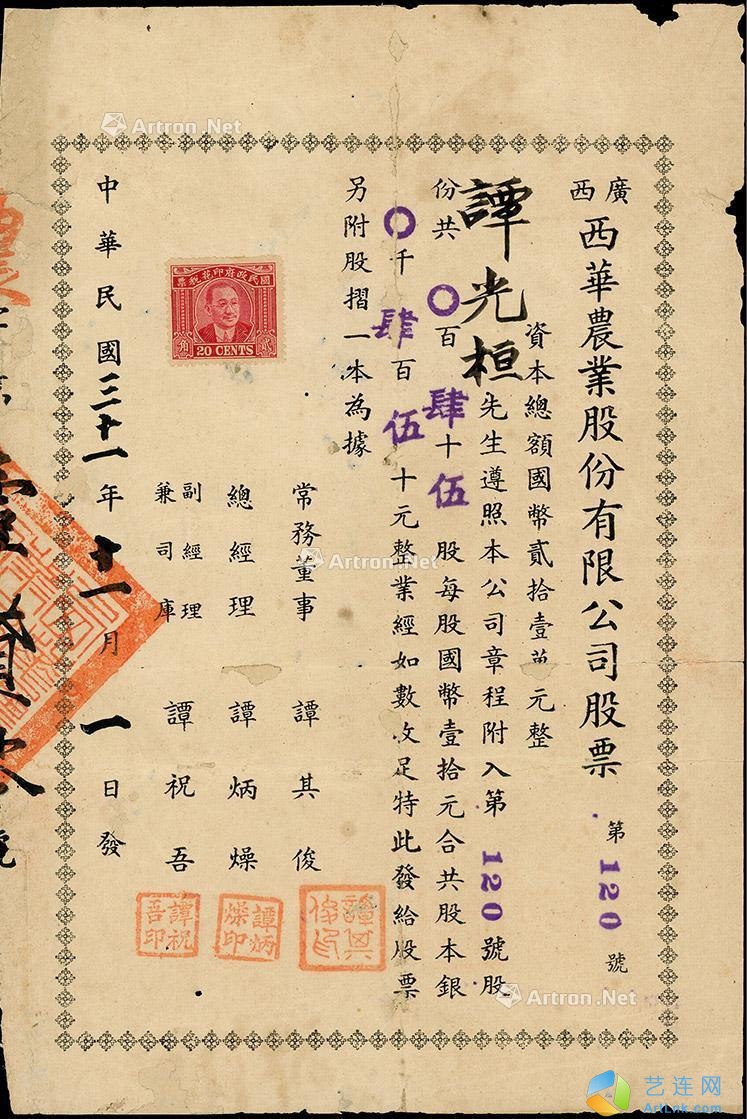 廣西
西華農業股份有限公司股票
第120號
資本總額國幣貳拾壹萬元整
譚光桓先生遵照本公司章程附入第120號股
份共〇百肆十伍股每股國幣壹拾元合共股本銀
〇千肆百伍十元整業經如數收足特此發給股票
另附股摺一本為據
常務董事 譚其俊
總經理 譚炳燥
副經理兼司庫 譚祝吾
譚其俊印
譚炳燥印
譚祝吾印
國民政府印花稅票
貳角
20 CENTS
中華民國三十一年十一月一日發
號
Artron.Net
Artron.Net
Artron.Net
艺连网
ArtLnk.com